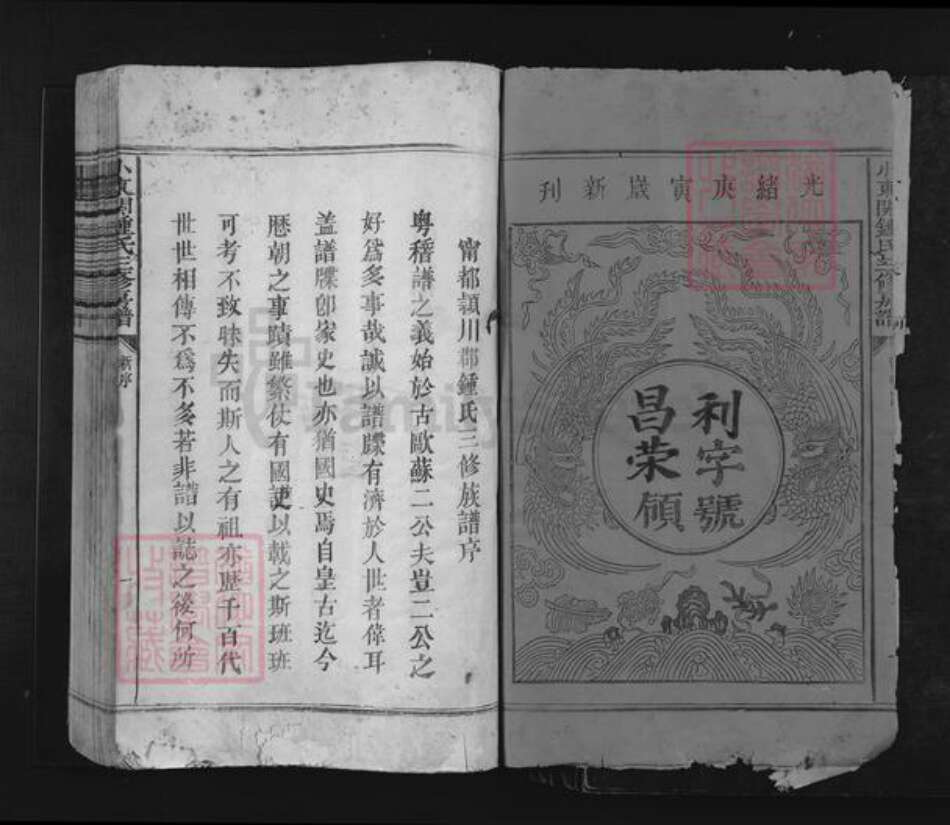 光緒庚寅歲新刊
利字號
昌荣領
甯都頴川郡鍾氏三修族譜序
粤稽譜之義始於古歐蘇二公夫豈二公之
好爲多事哉誠以譜牒有濟於人世者偉耳
盖譜牒卽家史也亦猶國史焉自皇古迄今
歷朝之事蹟雖繁仗有國史以載之斯班班
可考不致昧失而斯人之有祖亦歷千百代
世世相傳不爲不多若非譜以誌之後何所
小東開鍾氏三修族譜
新序
一